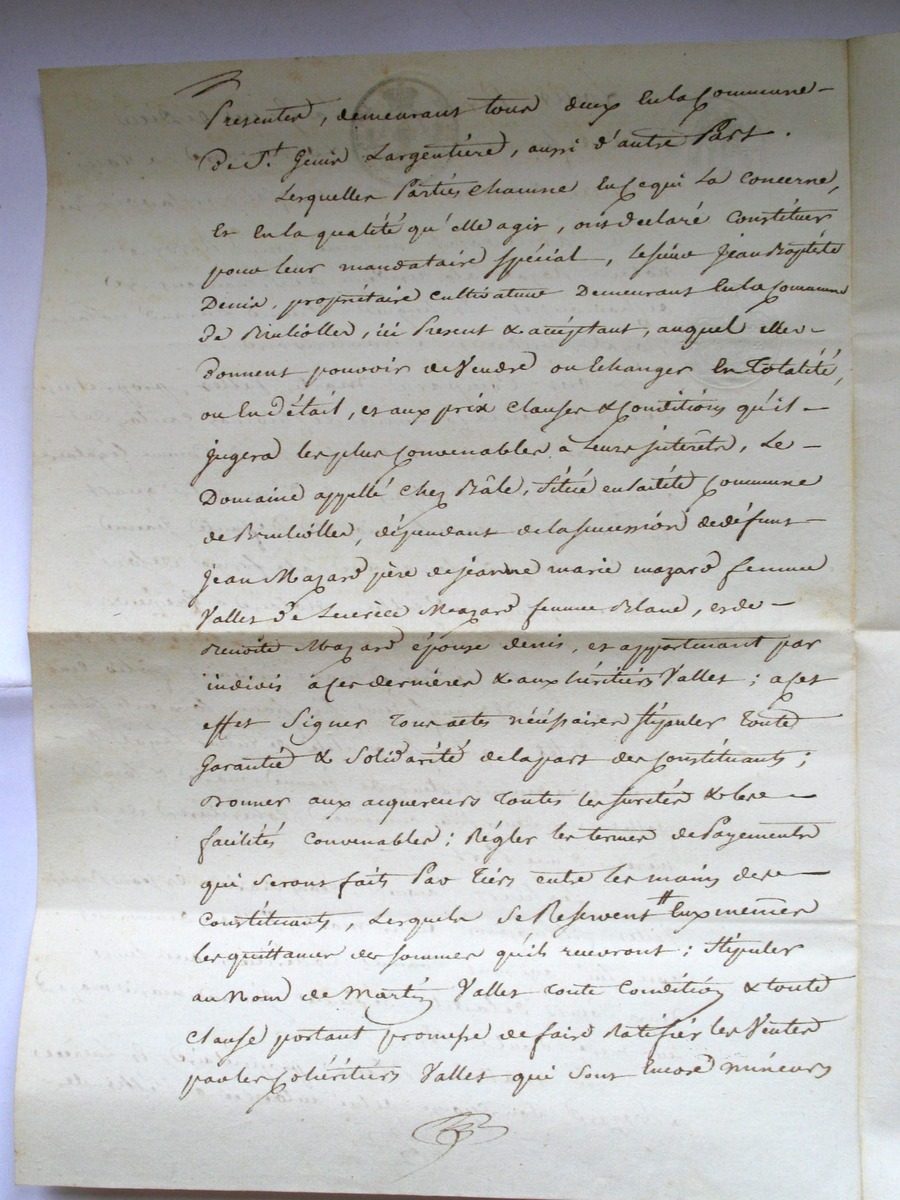 Presentes, demeurans tous deux en la Commune
De St Genis Largentière, aussi d'autre Part.
Lesquelles Parties chacune en ce qui la concerne,
Et en la qualité qu'elle agit, ont déclaré Constituer
pour leur mandataire spécial, le sieur Jean Baptiste
Denis, propriétaire cultivateur Demeurant en la Commune
de Brulliolles, ici Présent & acceptant, auquel elles
donnent pouvoir de Vendre ou Echanger En Totalité,
ou En Détail, et aux prix Clauses & Conditions qu'il
jugera les plus Convenables à Leurs intérêts, Le
Domaine appellé Chez Bâle, Situé en ladite Commune
de Brulliolles, dépendant de la succession de défunt
Jean Mazard père de jeanne marie mazard femme
Vallet, de Mazard femme Blanc, et de
Benoite Mazard épouse denis, et appartenant par
indivis à ces dernières & aux héritiers Vallet; à cet
effet Signer tous actes nécéssaires Stipuler toute
Garantie & Solidarité de la part des Constituants;
Donner aux acquereurs toutes les suretés & les
facilités convenables; Régler les termes de Payements
qui Seront faits Par Tiers entre les mains des
Constituants, Lesquels Se Reservent Eux memes
les quittances des sommes qu'ils recevront; Stipuler
au Nom de Martin Vallet toute Condition & toute
Clause portant promesse de faire Ratifier les Ventes
par les Cohéritiers Vallet qui Sont Encore mineurs